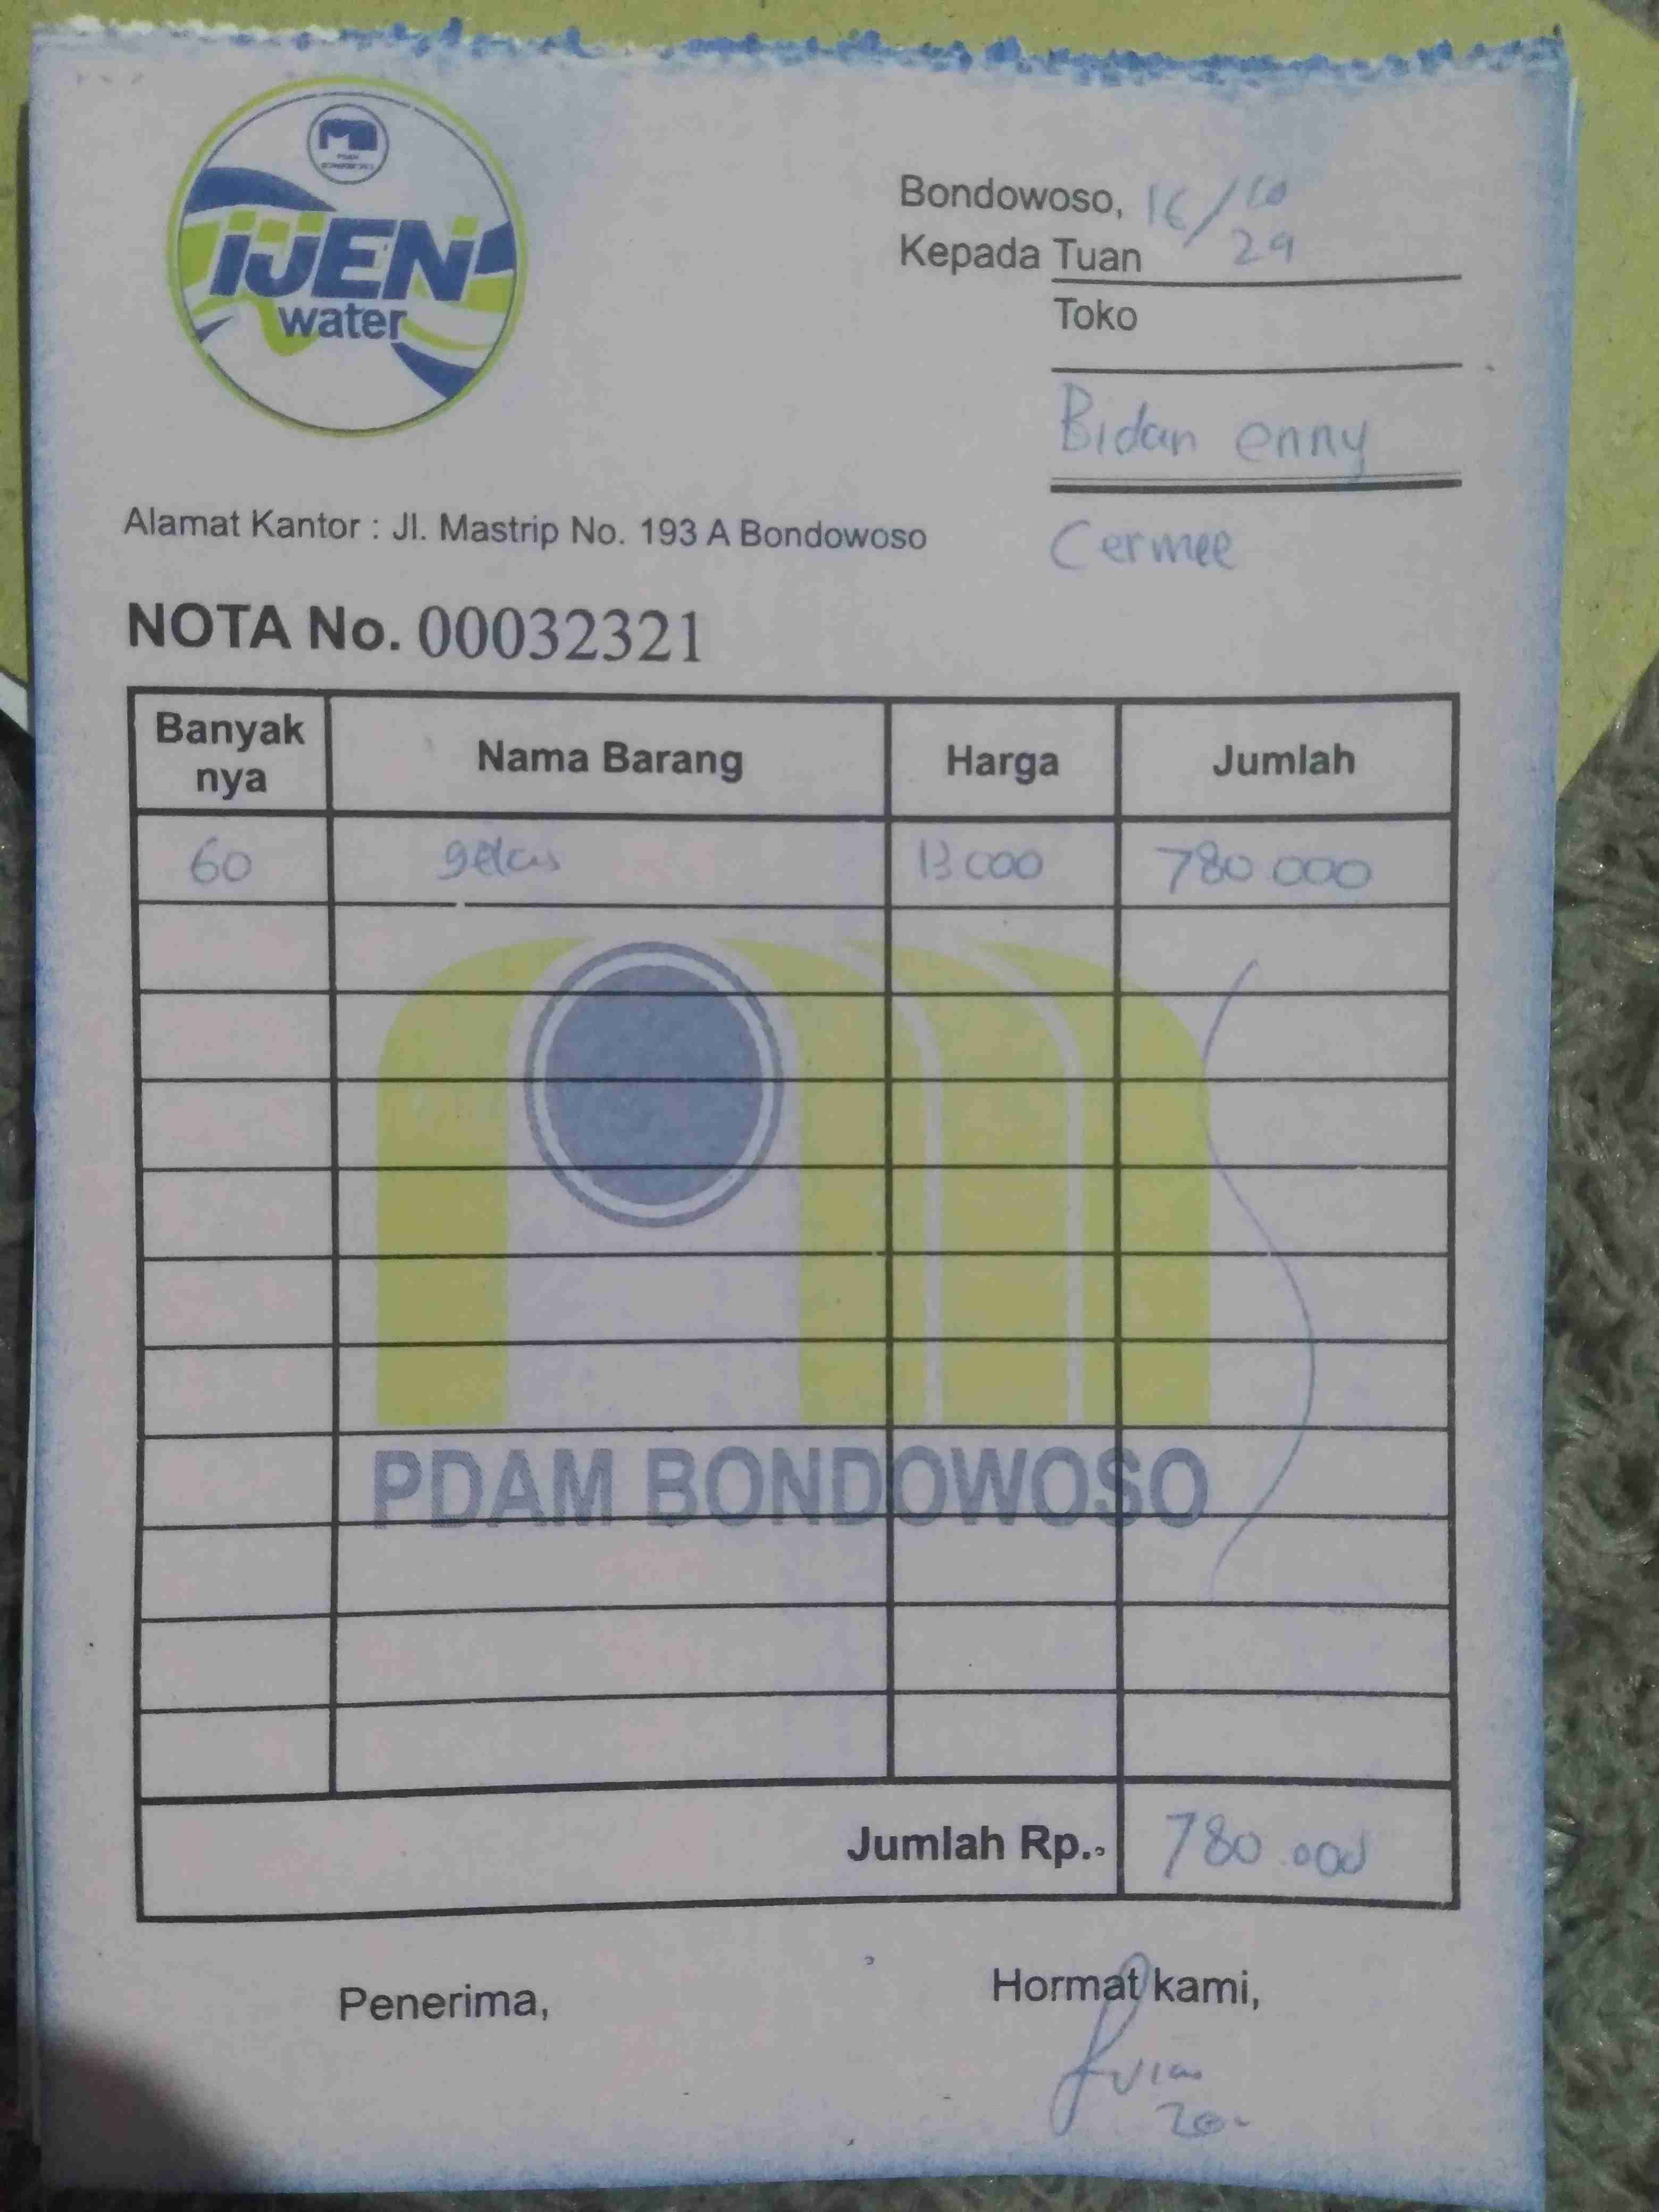 IJEN
water
Bondowoso, 16/10
Kepada Tuan 29
Toko
Bidan enny
Cermee
Alamat Kantor : Jl. Mastrip No. 193 A Bondowoso
NOTA No. 00032321
Banyak nya Nama Barang Harga Jumlah
60 gelas 13 000 780 000
PDAM BONDOWOSO
Jumlah Rp. 780.000
Penerima, Hormat kami,